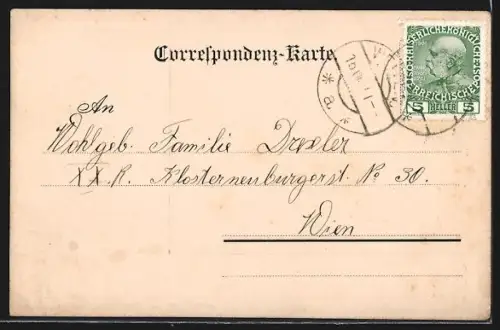 Correspondenz-Karte
KAISERLICHE KÖNIGLICHE
ÖSTERREICHISCHE
5 HELLER 5
An
Wohlgeb. Familie Drexler
XX.R. Klosterneuburgerst. No 30.
Wien